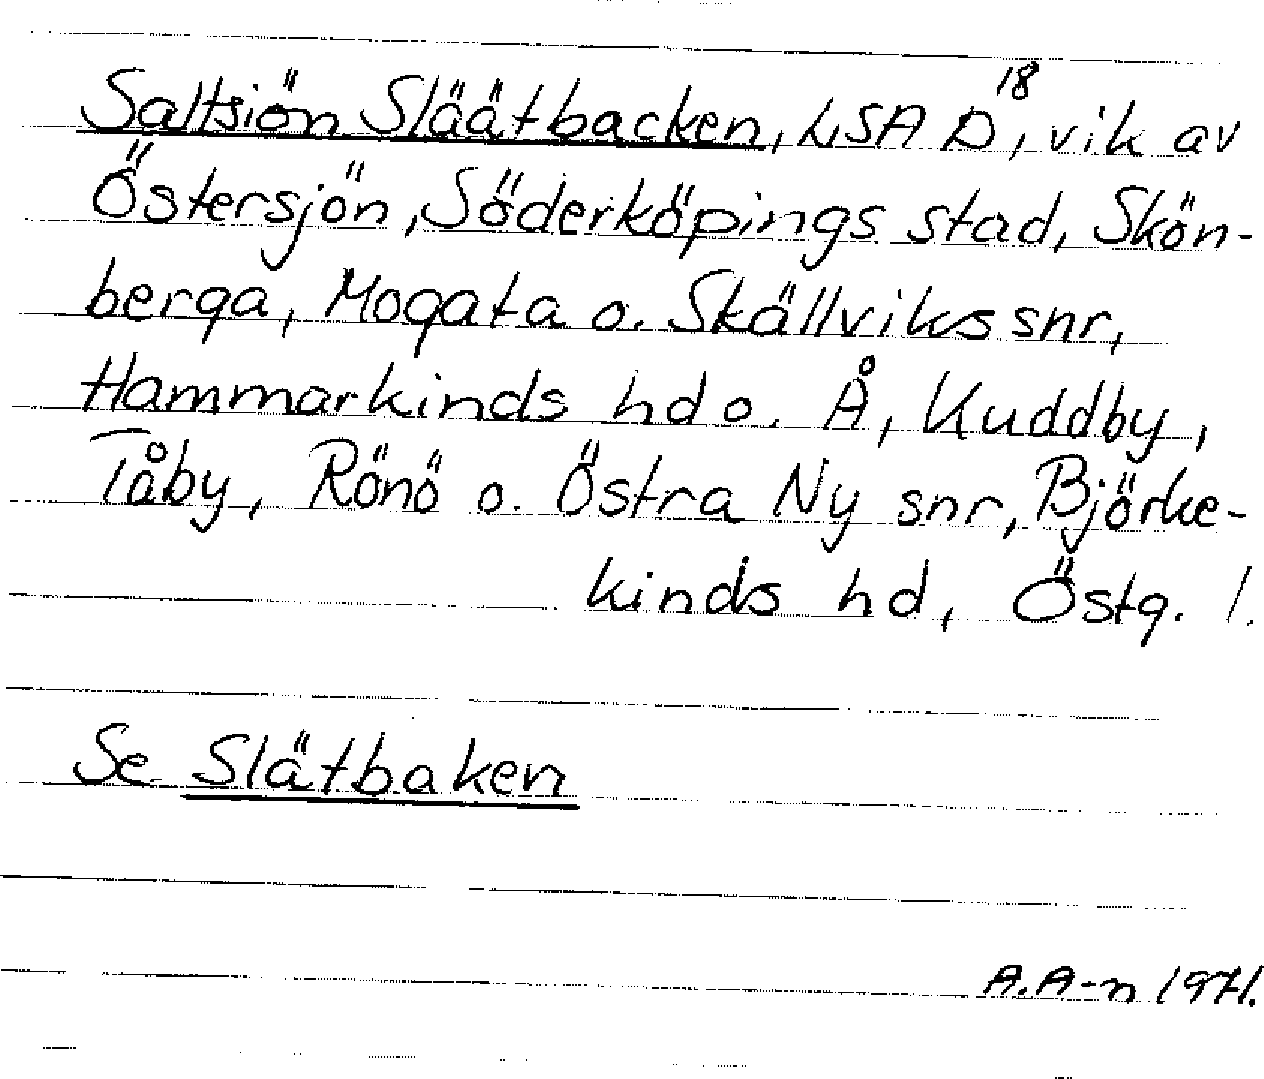 Saltsiön Släätbacken, LSA D18, vik av
Östersjön, Söderköpings stad, Skön-
berga, Mogata o. Skällviks snr,
Hammarkinds hd o. Å, Kuddby,
Tåby, Rönö o. Östra Ny snr, Björke-
kinds hd, Östg. l.
Se Slätbaken
A.A-n 1971.